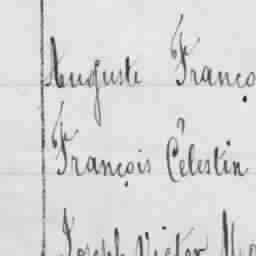 Auguste Franço
François Célestin
Joseph Victor